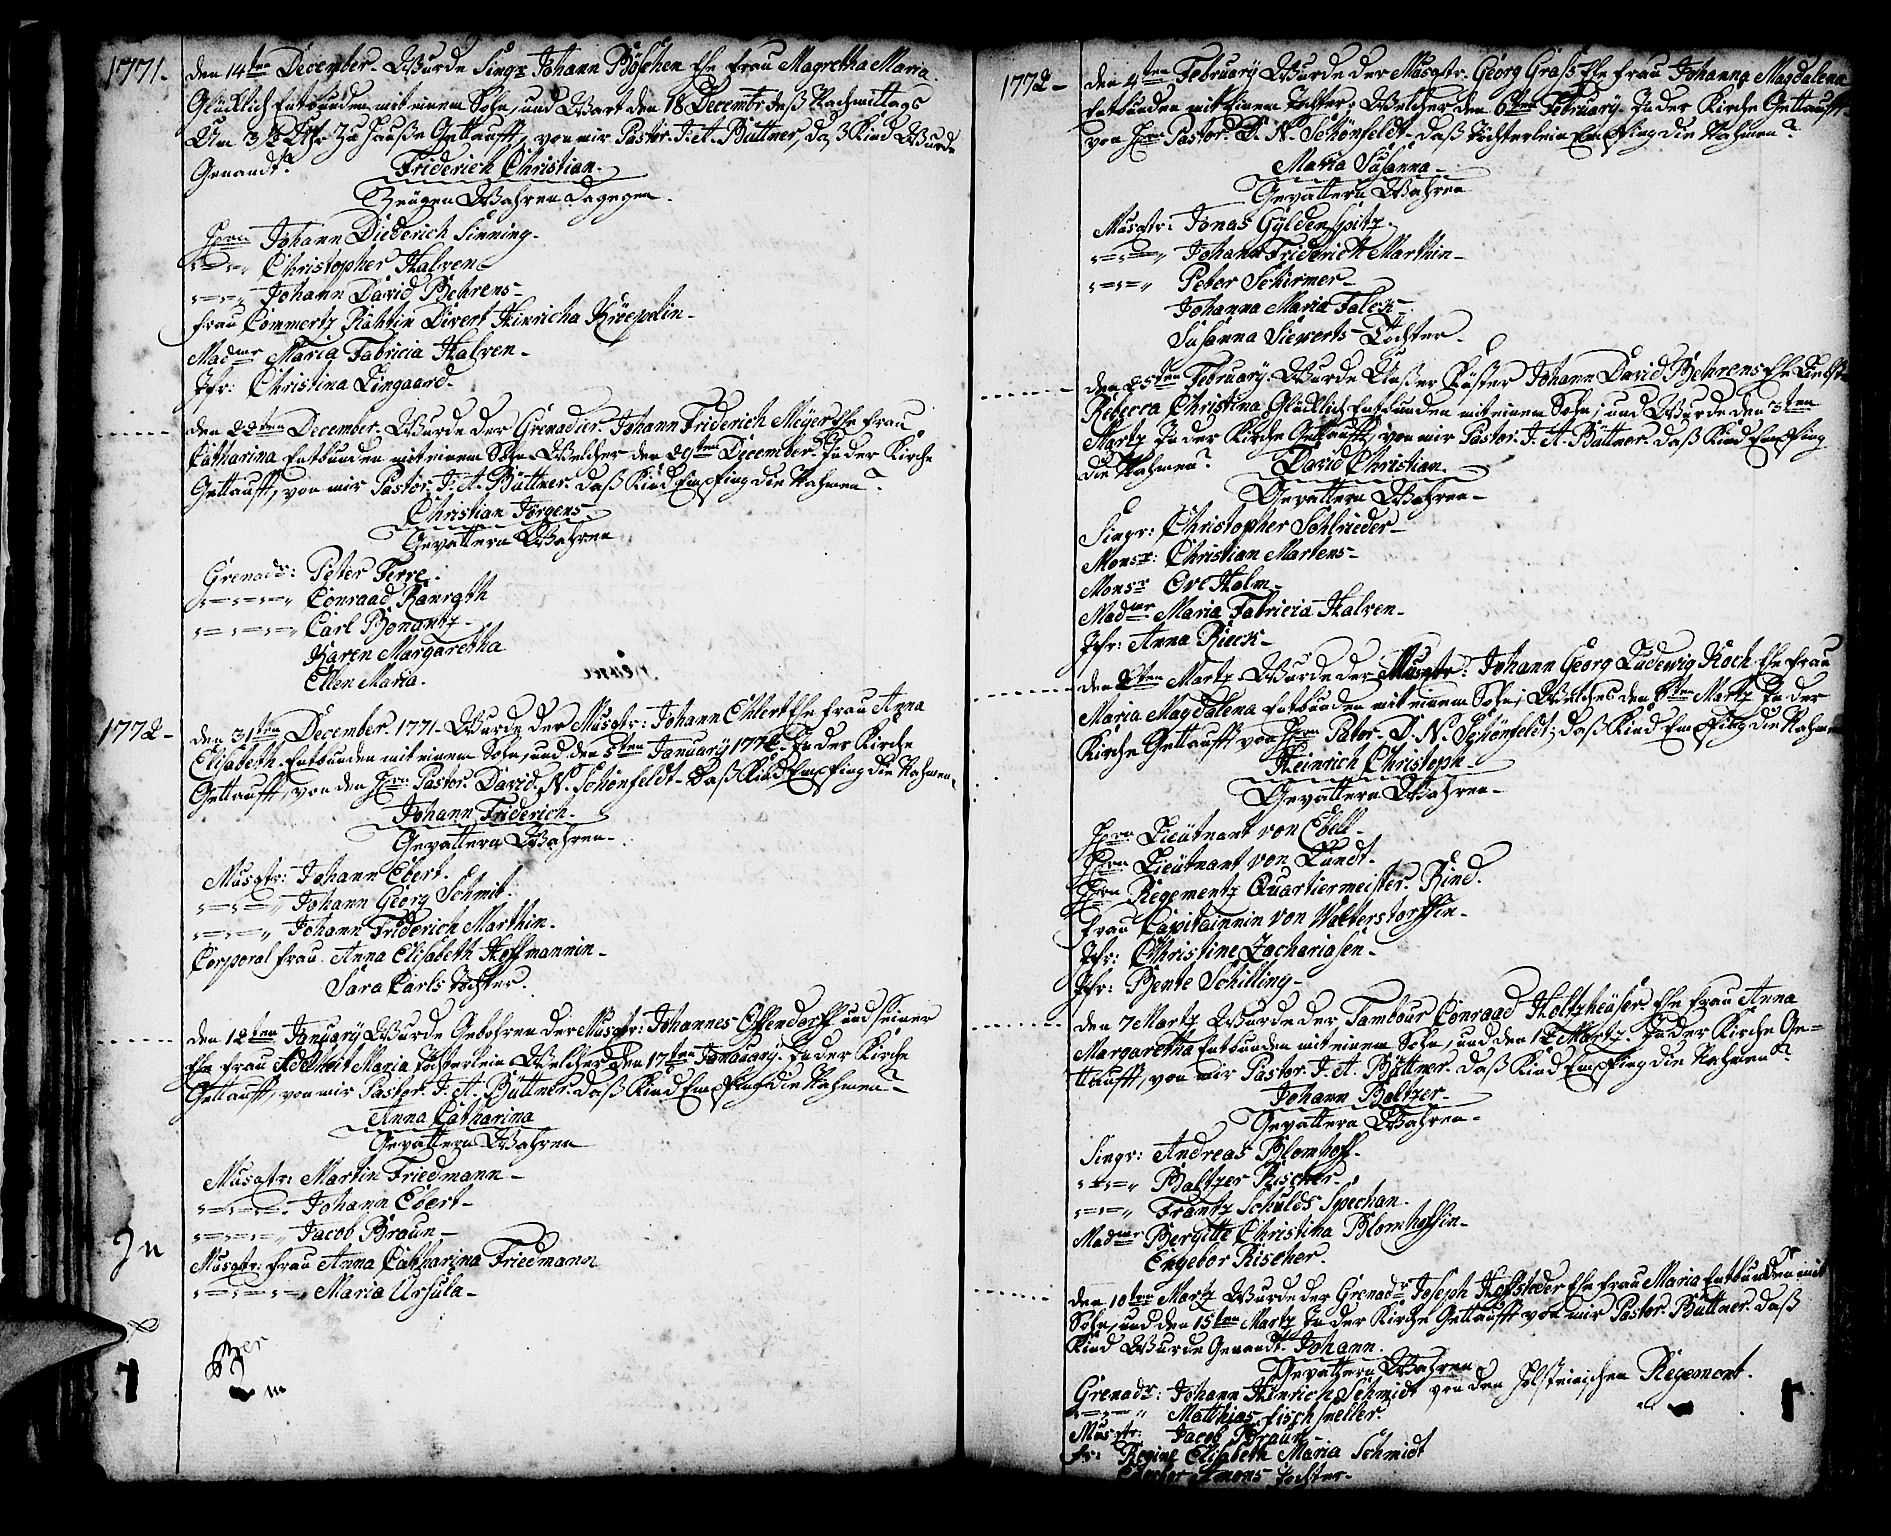 1771.
den 14ten December. Wurde Singr Johann Böschen Ehe Frau Magretha Maria.
Glücklich Entbunden mit einem Sohn, und Wart den 18 Decembr deß Nachmittags
Um 3½ Uhr Zu Hauße Gettaufft, von mir Pastor. J. A. Büttner, daß Kind Wurde
Genandt.
Friderich Christian.
Zeügen Wahren dagegen.
Hrrn Johann Diederich Sinning.
Christopher Halven
Johann David Behrens
Frau Commertz Rähtin Divert Hinricha Kröepelin
Madme Maria Fabricia Halven
Jfr: Christina Lingaard
den 22ten December. Wurde der Grenadier. Johann Friderich Meÿer Ehe Frau
Catharina Entbunden mit einem Sohn Welcher den 29ten December. In der Kirche
Gettaufft, von mir Pastor. J. A. Büttner. daß Kind Empfing die Nahmen
Christian Jörgens
Gevattern Wahren
Grenadr: Peter Ferre.
Conraad Ranrath
Carl Bonantz
Karen Margaretha
Ellen Maria.
1772
den 31ten December. 1771 Wurde der Musqtr: Johann Ehlert Ehe Frau Anna
Elisabeth. Entbunden mit einem Sohn, und den 5ten Januarÿ 1772. In der Kirche
Gettaufft, von den Hrrn Pastor. David. N. Schönfeldt daß Kind Empfing die Nahmen
Johann Friderich.
Gevattern Wahren
Musqtr: Johann Ebert.
Johann Georg Schmit.
Johann Friderich Marthin.
Corporal Frau. Anna Elisabeth Hoffmannin
Sara Carls Tochter.
den 12ten Januarÿ Wurde Gebohren der Musqtr: Johannes Offendorff und seiner
Ehe Frau Adelheit Maria Töchterlein Welches den 17ten Januarÿ. In der Kirche
Gettaufft, von mir Pastor. J. A. Büttner. daß Kind Empfing die Nahmen
Anna Catharina
Gevattern Wahren
Musqtr: Martin Friedmann
Johann Ebert
Jacob Braun
Musqtr: Frau Anna Catharina Friedmann
Maria Ursula
1772
den 4ten Februarÿ Wurde der Musqtr. Georg Graß Ehe Frau Johanna Magdalena
Entbunden mit Einem Tochter: Welcher den 6ten Februarÿ. In der Kirche Gettaufft
von Hrrn Pastor. D. N. Schönfeldt daß Töchterlein Empfing die Nahmen
Maria Susanna
Gevattern Wahren
Musqtr: Jonas Gÿldenspitz
Johann Friderich Marthin
Peter Schirmer
Johanna Maria Falck
Susanna Siewerts Tochter.
den 25ten Februarÿ. Wurde Unßer Küster Johann David Behrens Ehe Liebste
Rebecca Christina Glücklich Entbunden mit einem Sohn, und Wurde den 3ten
Martz In der Kirche Gettaufft, von mir Pastor. J. A. Büttner. daß Kind Empfing
die Nahmen
David Christian
Gevattern Wahren
Singr: Christopher Schlrieder
Monsr: Christian Martens
Monsr Ove Holm
Madme Maria Fabricia Halven
Jfr: Anna Rieck
den 2ten Martz Wurde der Musqtr: Johann Georg Ludewig Koch Ehe Frau
Maria Magdalena Entbunden mit einem Sohn, Welches den 8ten Martz In der
Kirche Gettaufft von Hrrn Pator. D. N. Schönfeldt, daß Kind Empfing die Nahmen
Heinrich Christoph
Gevattern Wahren
Hrrn Lieütnant von Ebell
Hrrn Lieütnant von Lundt.
Hrrn Regementz Quartiermeister. Rind.
Frau Capitainnin von Walterstorffin
Jfr: Christine Zachariasen
Jfr: Bente Schilling
den 7 Martz Wurde der Tambour Conraad Holtzheüser Ehe Frau Anna
Margaretha Entbunden mit einem Sohn, und den 12 Martz. In der Kirche Ge=
ttaufft, von mir Pastor. J. A. Büttner. daß Kind Empfing die Nahmen
Johann Baltzer
Gevattern Wahren
Singr: Andreas Blomhoff.
Baltzer Rischer.
Frantz Schulds Spechan.
Madme Bergitte Christina Blomhoffin
Engebor Rischer.
den 10ten Martz Wurde der Grenadr Joseph Hoffsteder Ehe Frau Maria Entbunden mit
Sohn, und den 15ten Martz In der Kirche Gettaufft von mir Pastor. Büttner. daß
Kind Wurde Genandt. Johann.
Gevattern Wahren
Grenadr: Johann Hinrich Schmidt von den Holsteinischen Regement.
Matthias Fischmeller.
Musqtr: Jacob Braun
Fr: Regine Elisabeth Maria Schmidt
Simons Tochter